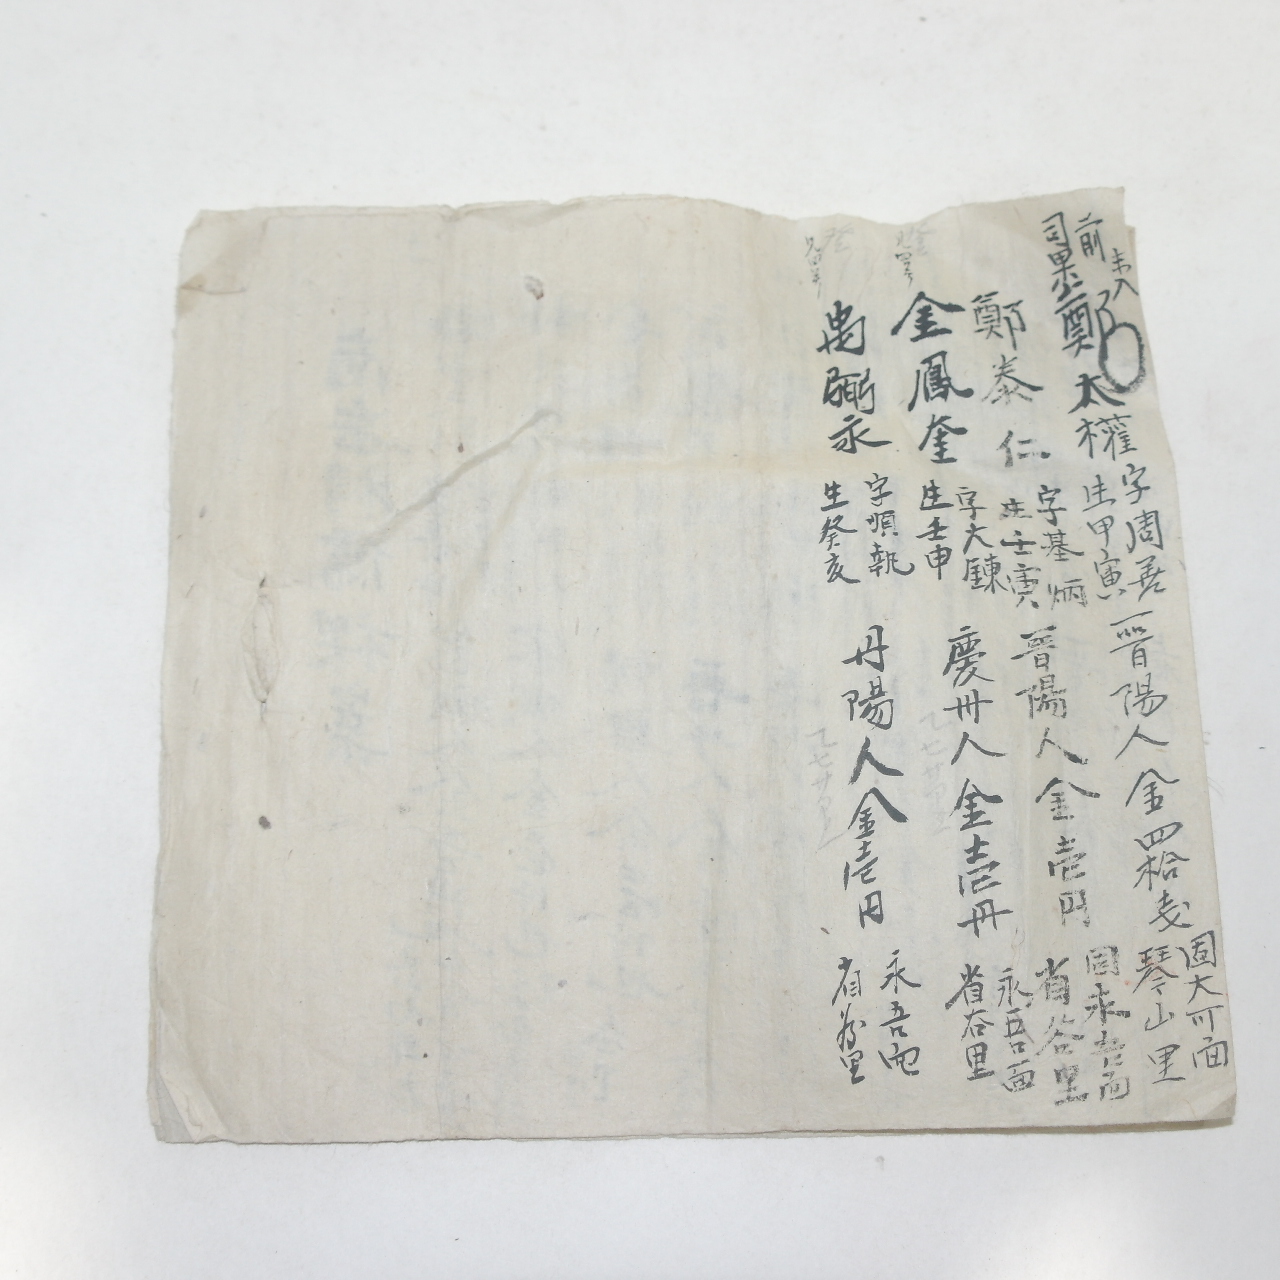 未入
前
司果
鄭太權
字周善
生甲寅
晋陽人金四拾戔
固大可面
琴山里
鄭泰仁
字基炳
生壬寅
晋陽人金壱円
固永吾面
省谷里
金鳳奎
字大鍊
生壬申
慶州人金壱円
永吾面
省谷里
禹弼永
字順執
生癸亥
丹陽人金壱円
永吾面
省谷里